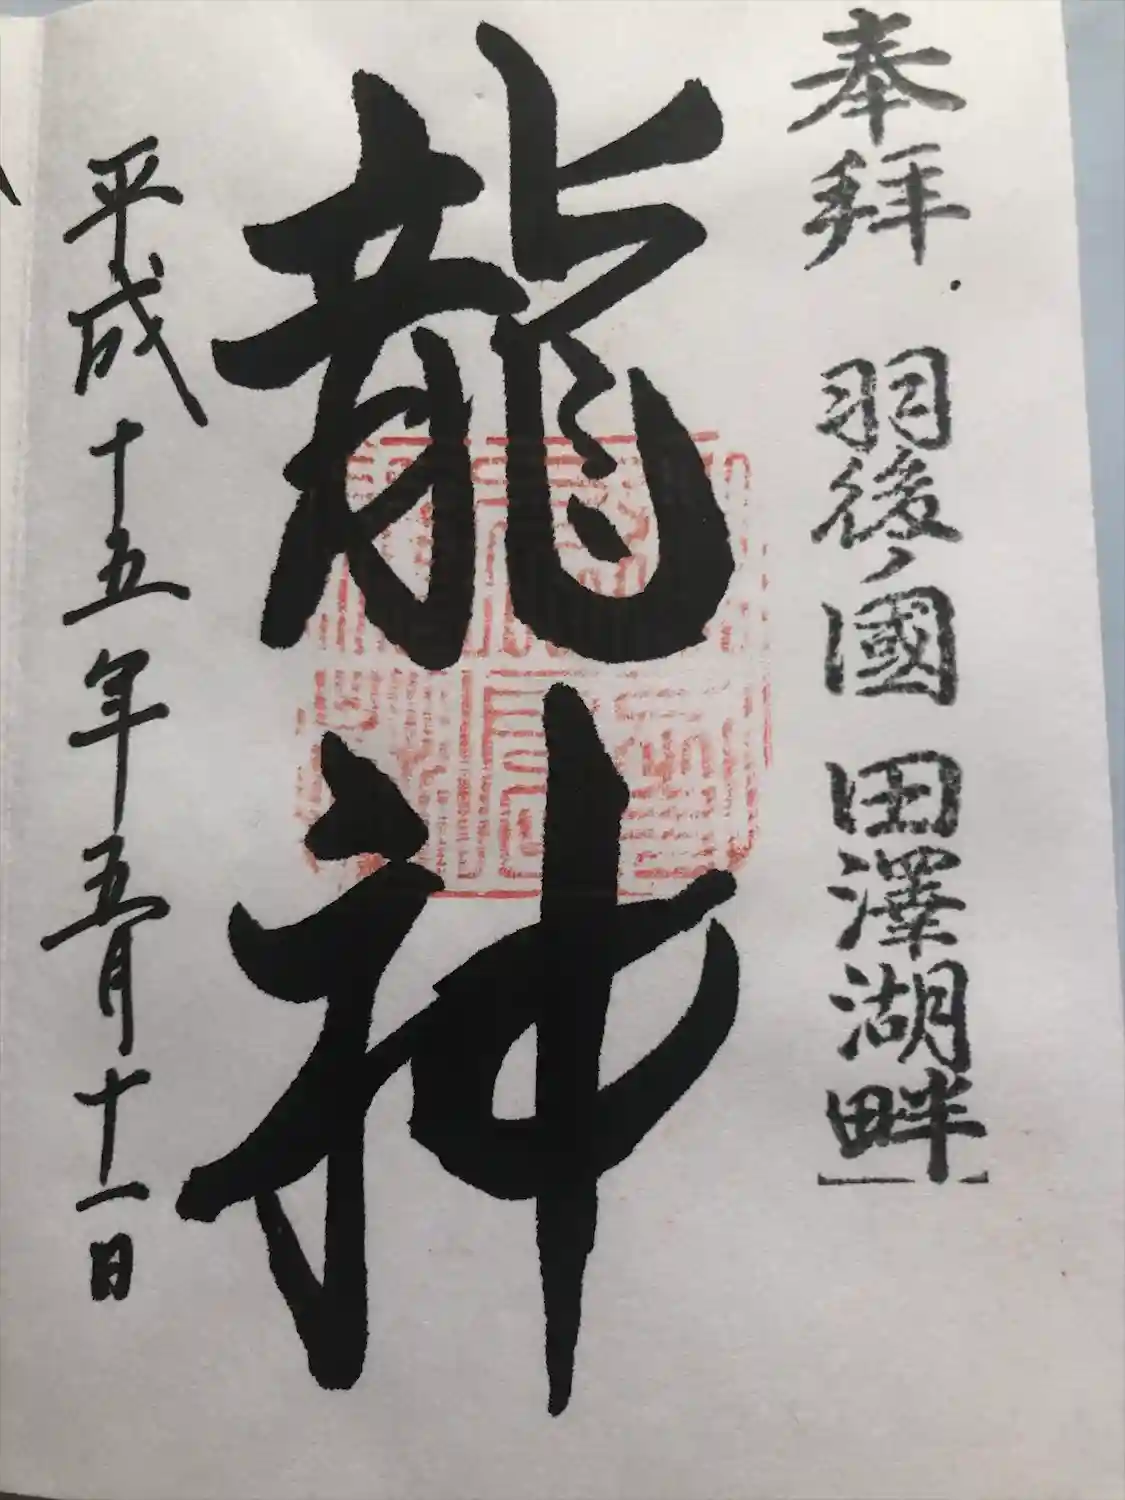 奉拜 羽後ノ國 田澤湖畔
龍神
平成十五年五月十一日